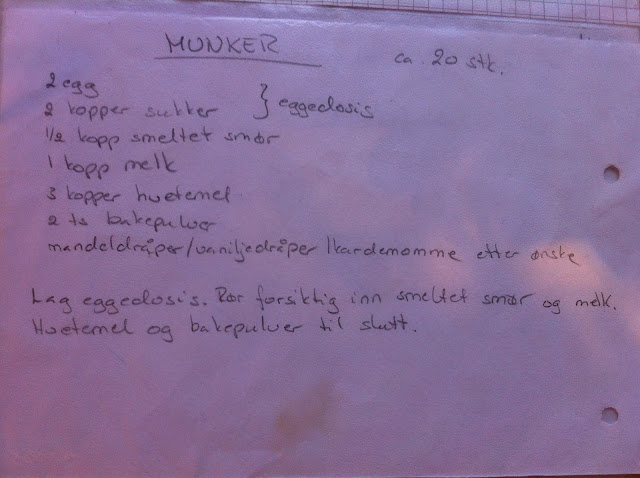 MUNKER ca. 20 stk.
2 egg
2 kopper sukker } eggedosis
1/2 kopp smeltet smør
1 kopp melk
3 kopper hvetemel
2 ts bakepulver
mandeldråper/vaniljedråper/kardemomme etter ønske
Lag eggedosis. Rør forsiktig inn smeltet smør og melk.
Hvetemel og bakepulver til slutt.